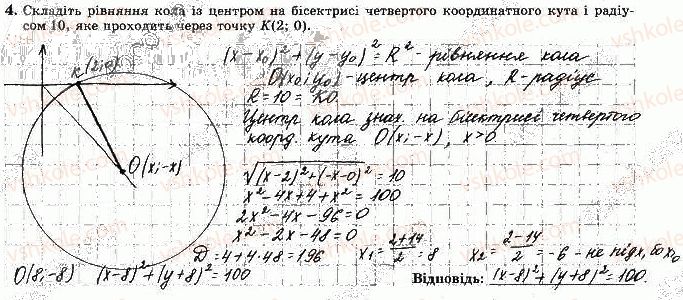 4. Складіть рівняння кола із центром на бісектрисі четвертого координатного кута і радіу-
сом 10, яке проходить через точку K(2; 0).
K(2;0)
(x-x₀)²+(y-y₀)²=R² - рівняння кола
O(x₀;y₀)-центр кола, R-радіус
R=10=KO.
Центр кола знах. на бісектрисі четвертого
коорд. кута O(x;-x), x>0.
O(x;-x)
√(x-2)²+(-x-0)²=10
x²-4x+4+x²=100
2x²-4x-96=0
x²-2x-48=0
D=4+4·48=196 x₁=(2+14)/2=8 x₂=(2-14)/2=-6 - не підх, бо x>0
O(8;-8) (x-8)²+(y+8)²=100 Відповідь: (x-8)²+(y+8)²=100.